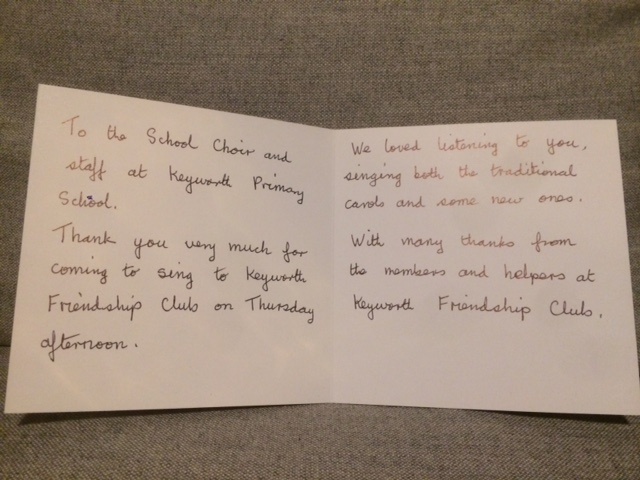 To the School Choir and
staff at Keyworth Primary
School.
Thank you very much for
coming to sing to Keyworth
Friendship Club on Thursday
afternoon.
We loved listening to you,
singing both the traditional
carols and some new ones.
With many thanks from
the members and helpers at
Keyworth Friendship Club.